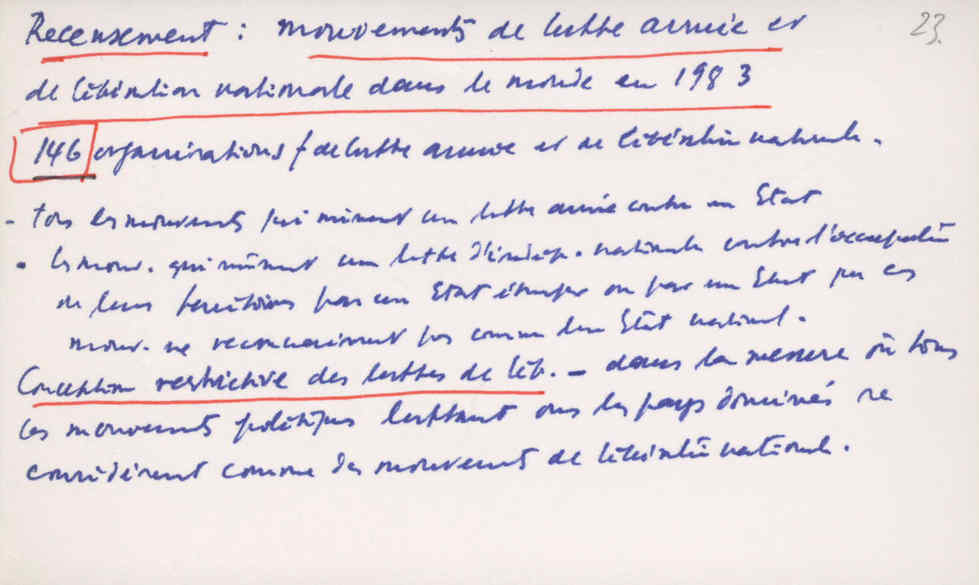 23.
Recensement : mouvements de lutte armée et
de libération nationale dans le monde en 1983
146 organisations de lutte armée et de libération nationale.
- tous les mouvements qui mènent une lutte armée contre un Etat
• les mouv. qui mènent une lutte d'indép. nationale contre l'occupation
de leurs territoires par un Etat étranger ou par un Etat que ces
mouv. ne reconnaissent pas comme leur Etat national.
Conception restrictive des luttes de lib. - dans la mesure où tous
les mouvements politiques luttant dans les pays dominés se
considèrent comme des mouvements de libération nationale.